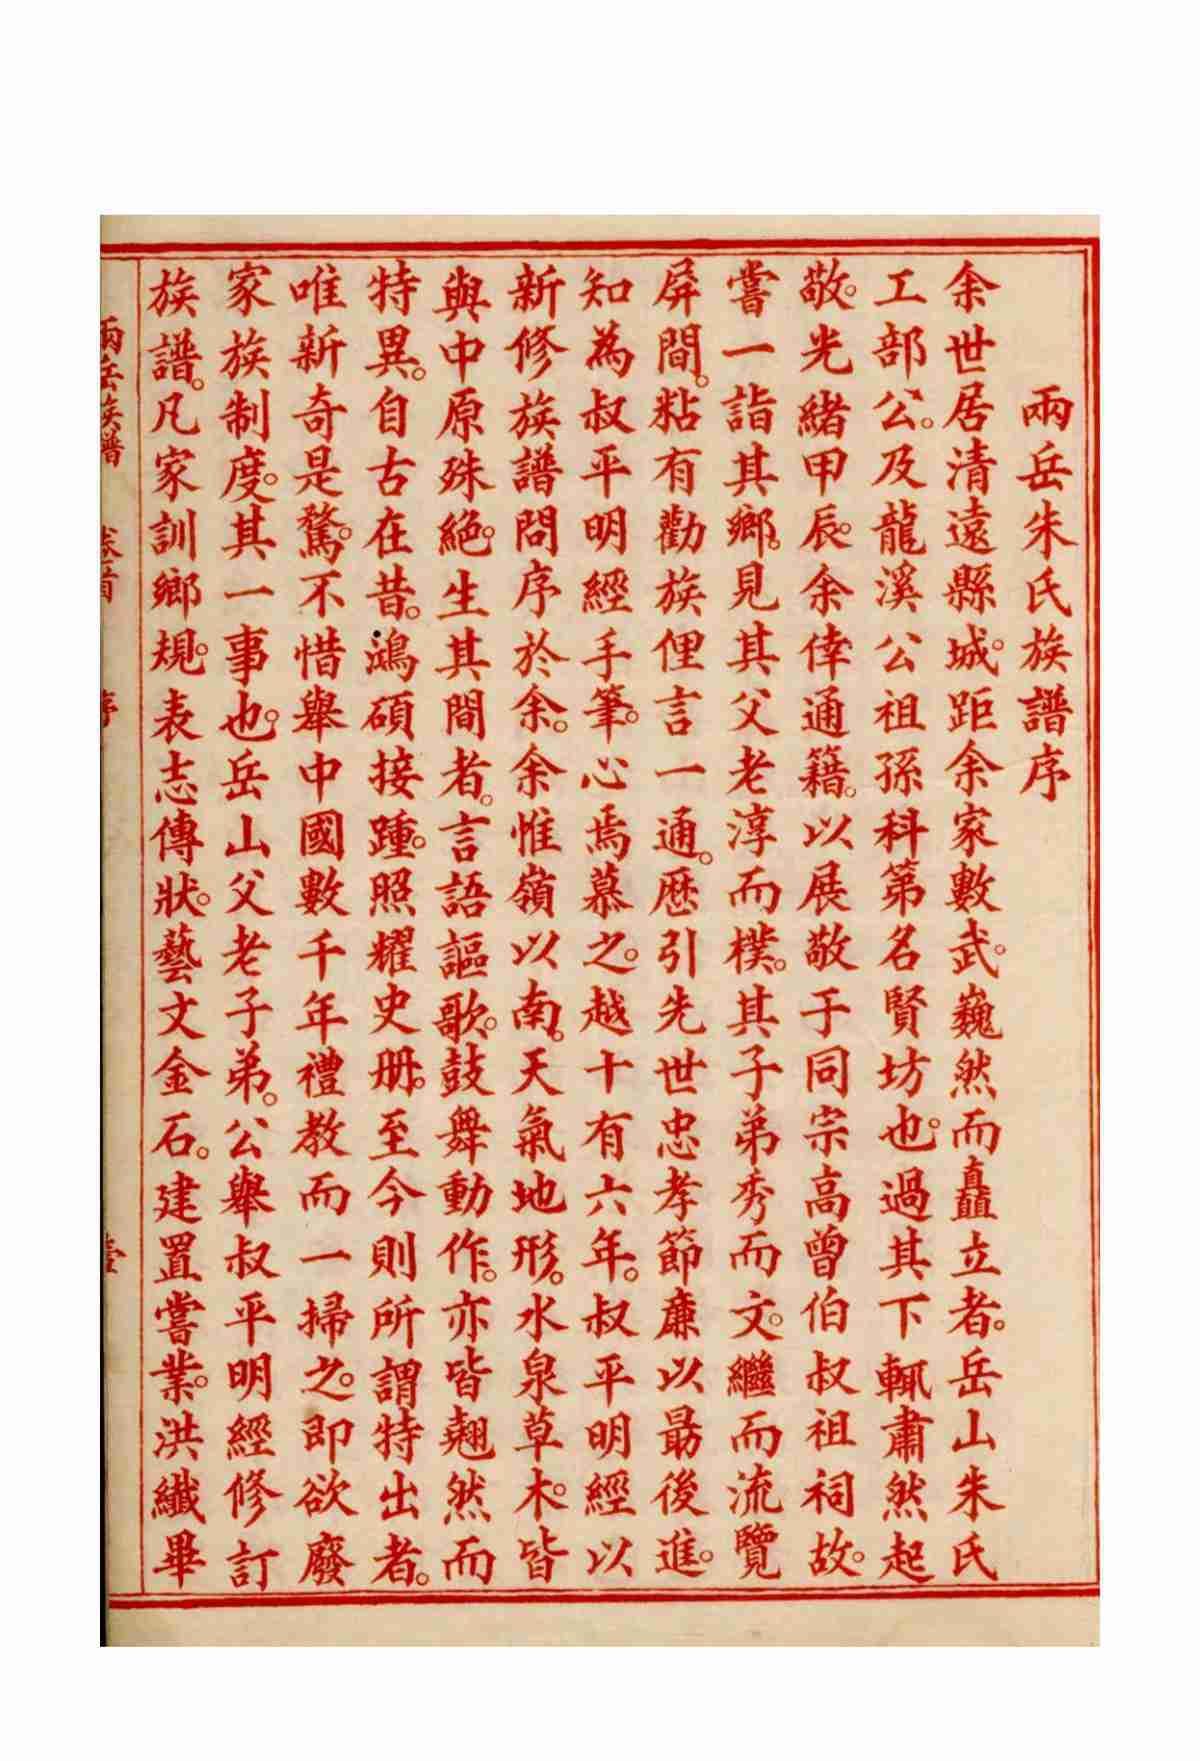 兩岳朱氏族譜序
余世居清遠縣城。距余家數武。巍然而矗立者。岳山朱氏
工部公。及龍溪公祖孫科第名賢坊也。過其下輒肅然起
敬。光緒甲辰。余倖通籍。以展敬于同宗高曾伯叔祖祠故。
嘗一詣其鄉。見其父老淳而樸。其子弟秀而文。繼而流覽
屏間。粘有勸族俚言一通。歷引先世忠孝節廉以勗後進。
知為叔平明經手筆。心焉慕之。越十有六年。叔平明經以
新修族譜問序於余。余惟嶺以南。天氣地形。水泉草木。皆
與中原殊絕。生其間者。言語謳歌。鼓舞動作。亦皆翹然而
特異。自古在昔。鴻碩接踵。照耀史册。至今則所謂特出者。
唯新奇是騖。不惜舉中國數千年禮教而一掃之。即欲廢
家族制度。其一事也。岳山父老子弟。公舉叔平明經修訂
族譜。凡家訓鄉規。表志傳狀。藝文金石。建置嘗業。洪纖畢
兩岳族譜 卷首 序 壹